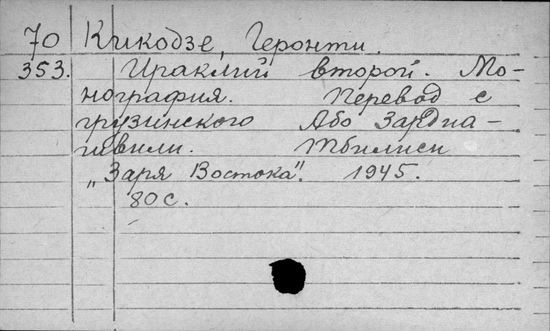 70 Кикодзе, Геронти.
353. Ираклий второй. Мо-
нография. Перевод с
грузинского Або Зардиа-
швили. Тбилиси
„Заря Востока". 1945.
80 с.